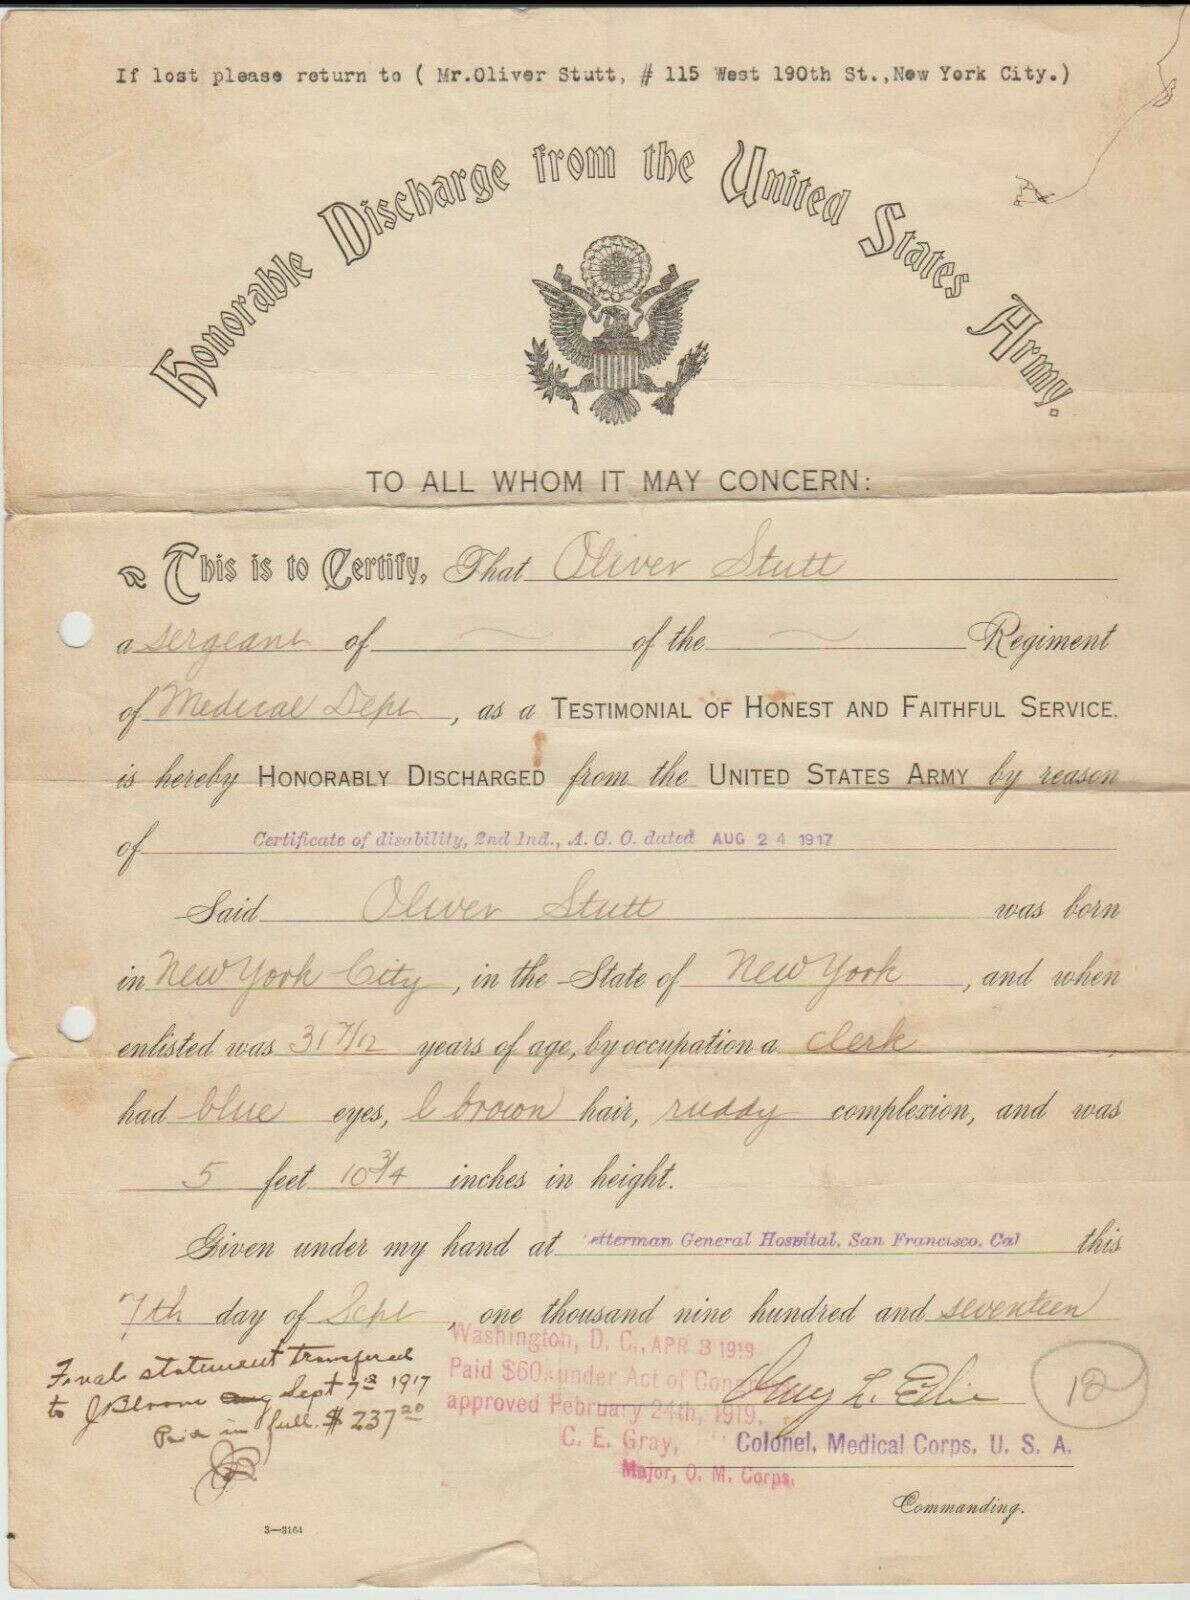 If lost please return to ( Mr.Oliver Stutt, # 115 West 190th St.,New York City.)
Honorable Discharge from the United States Army.
TO ALL WHOM IT MAY CONCERN:
This is to Certify, That Oliver Stutt
a Sergeant of — of the — Regiment
of Medical Dept, as a TESTIMONIAL OF HONEST AND FAITHFUL SERVICE,
is hereby HONORABLY DISCHARGED from the UNITED STATES ARMY by reason
of Certificate of disability, 2nd Ind., A. G. O. dated AUG 24 1917
Said Oliver Stutt was born
in New York City, in the State of New York, and when
enlisted was 31 7/12 years of age, by occupation a clerk,
had blue eyes, l brown hair, ruddy complexion, and was
5 feet 10 3/4 inches in height.
Given under my hand at etterman General Hospital, San Francisco, Cal this
7th day of Sept, one thousand nine hundred and seventeen
Final statement transferred
to J Bloom Aug Sept 7th 1917
Paid in full. $ 237 20
Washington, D. C., APR 3 1919
Paid $60. under Act of Congress
approved February 24th, 1919.
C. E. Gray,
Major, Q. M. Corps.
L. Edie
Colonel, Medical Corps, U. S. A.
Commanding.
12
3—3164